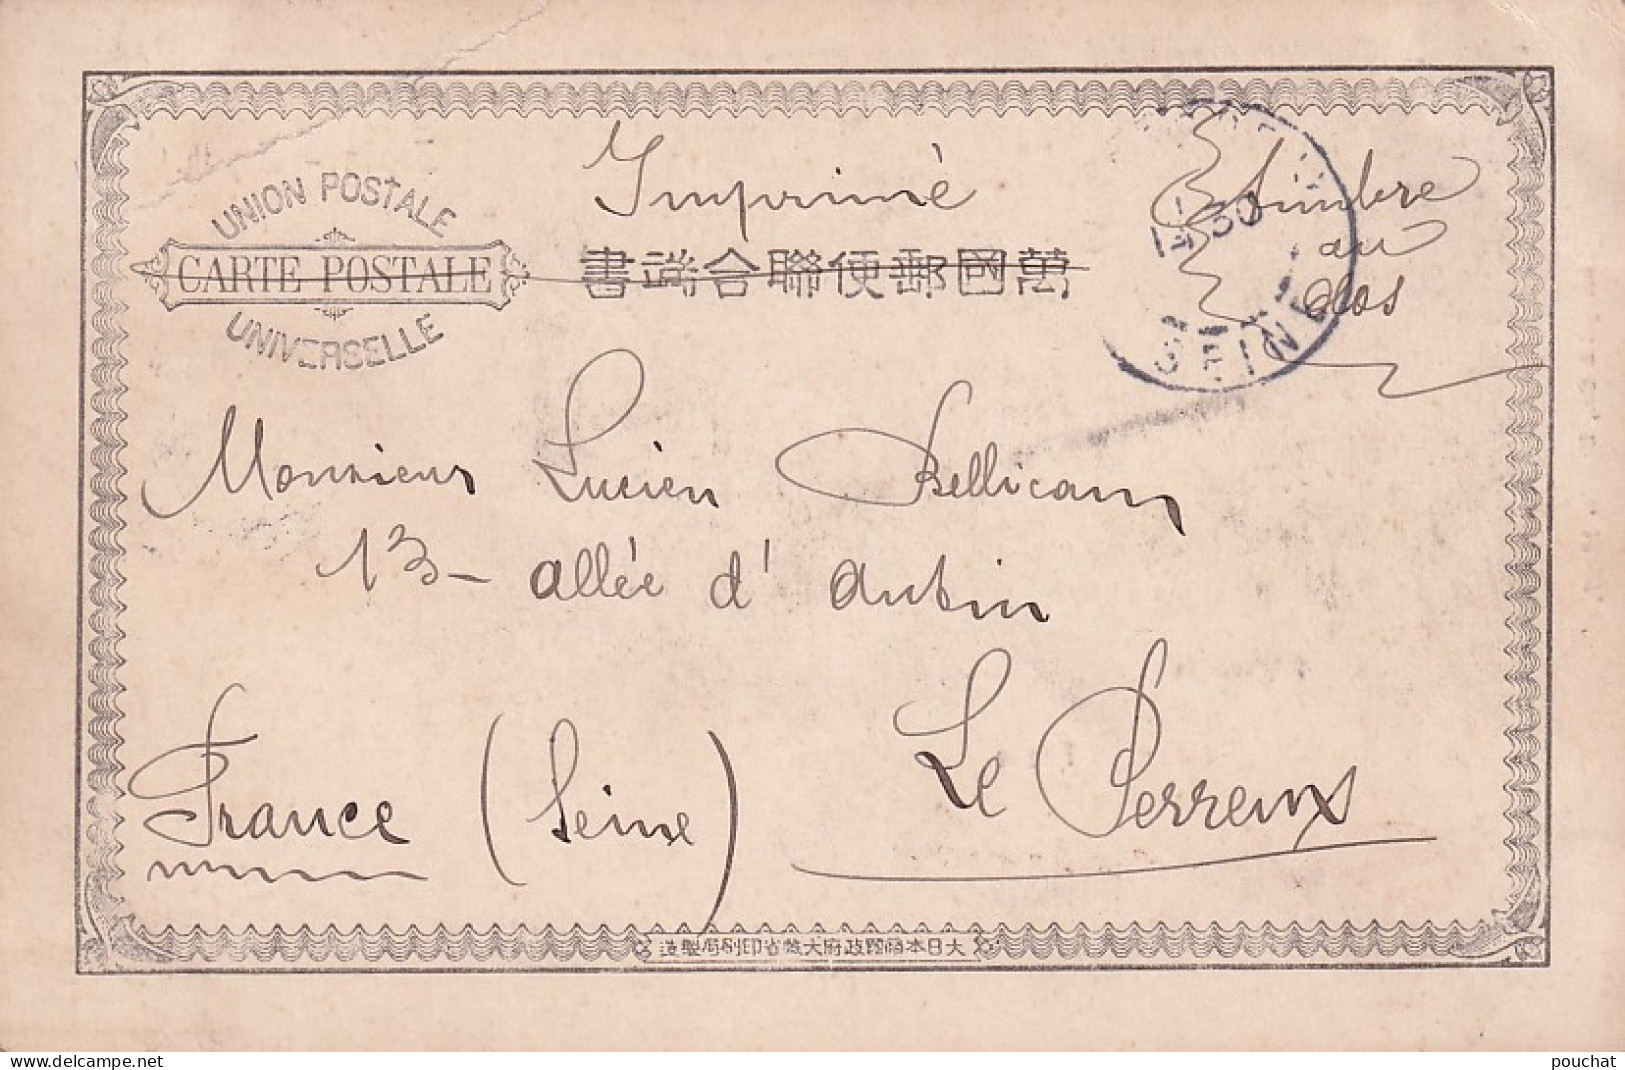 UNION POSTALE
CARTE POSTALE
UNIVERSELLE
Imprimé
timbre
au
dos
書端合聯便郵國萬
14 30
SEINE
Monsieur Lucien Bellicam
13 - allée d'Aubin
Le Perreux
France (Seine)
造製局刷印省蔵大府政國帝本日大
www.delcampe.net
pouchat